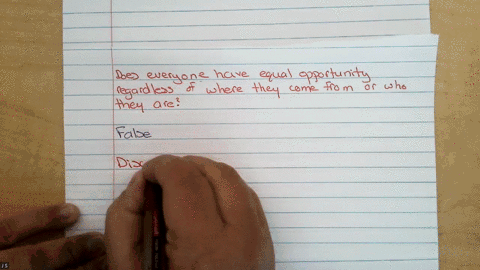 Does everyone have equal opportunity
regardless of where they come from or who
they are?
False